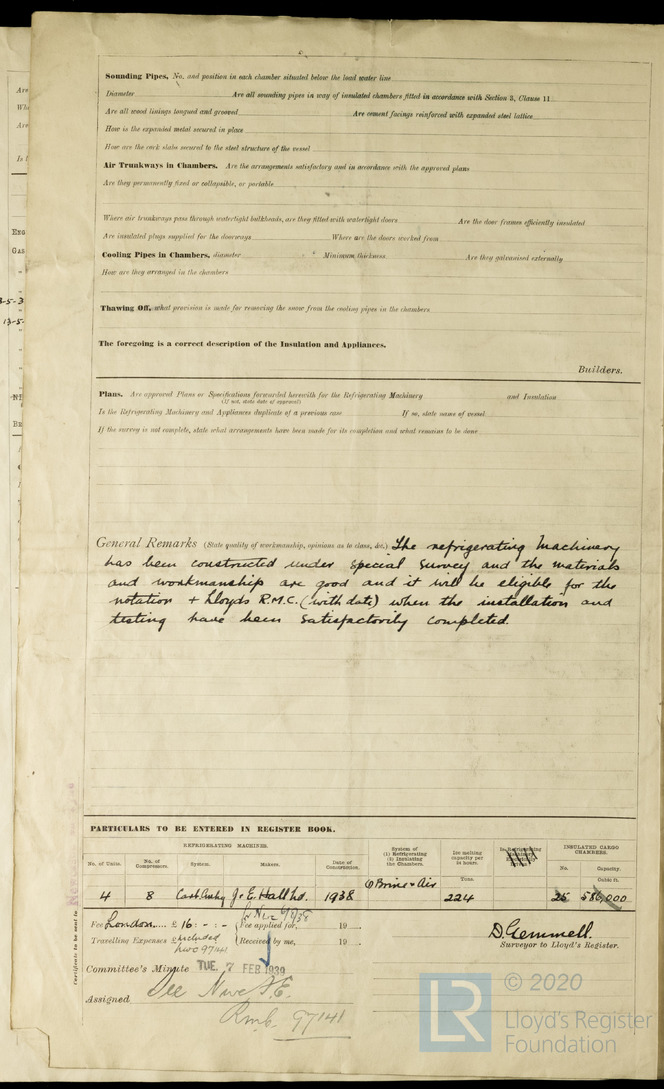 Sounding Pipes, No. and position in each chamber situated below the load water line
Diameter Are all sounding pipes in way of insulated chambers fitted in accordance with Section 3, Clause 11
Are all wood linings tongued and grooved Are cement facings reinforced with expanded steel lattice
How is the expanded metal secured in place
How are the cork slabs secured to the steel structure of the vessel
Air Trunkways in Chambers. Are the arrangements satisfactory and in accordance with the approved plans
Are they permanently fixed or collapsible, or portable
Where air trunkways pass through watertight bulkheads, are they fitted with watertight doors Are the door frames efficiently insulated
Are insulated plugs supplied for the doorways Where are the doors worked from
Cooling Pipes in Chambers, diameter Minimum thickness Are they galvanised externally
How are they arranged in the chambers
Thawing Off, what provision is made for removing the snow from the cooling pipes in the chambers
The foregoing is a correct description of the Insulation and Appliances.
Builders.
Plans. Are approved Plans or Specifications forwarded herewith for the Refrigerating Machinery and Insulation
(If not, state date of approval)
Is the Refrigerating Machinery and Appliances duplicate of a previous case If so, state name of vessel
If the survey is not complete, state what arrangements have been made for its completion and what remains to be done
General Remarks (State quality of workmanship, opinions as to class, &c.) The refrigerating machinery
has been constructed under special survey and the materials
and workmanship are good and it will be eligible for the
notation + Lloyds R.M.C. (with date) when the installation and
testing have been satisfactorily completed.
PARTICULARS TO BE ENTERED IN REGISTER BOOK.
REFRIGERATING MACHINES.
No. of Units. No. of Compressors. System. Makers. Date of Construction. System of (1) Refrigerating (2) Insulating the Chambers. Ice melting capacity per 24 hours. Tons. INSULATED CARGO CHAMBERS. No. Capacity. Cubic ft.
4 8 J. & E. Hall Ltd. 1938 Brine & Air 224 25 586,000
Fee London £ 16 : - : - Fee applied for, 19
Travelling Expenses £ included Received by me, 19
NWC 97141
D Gemmell.
Surveyor to Lloyd's Register.
Committee's Minute TUE. 7 FEB 1939
Assigned See Nwc F.E.
Rmb. 97141
Certificate to be sent to
© 2020
LR
Lloyd's Register
Foundation